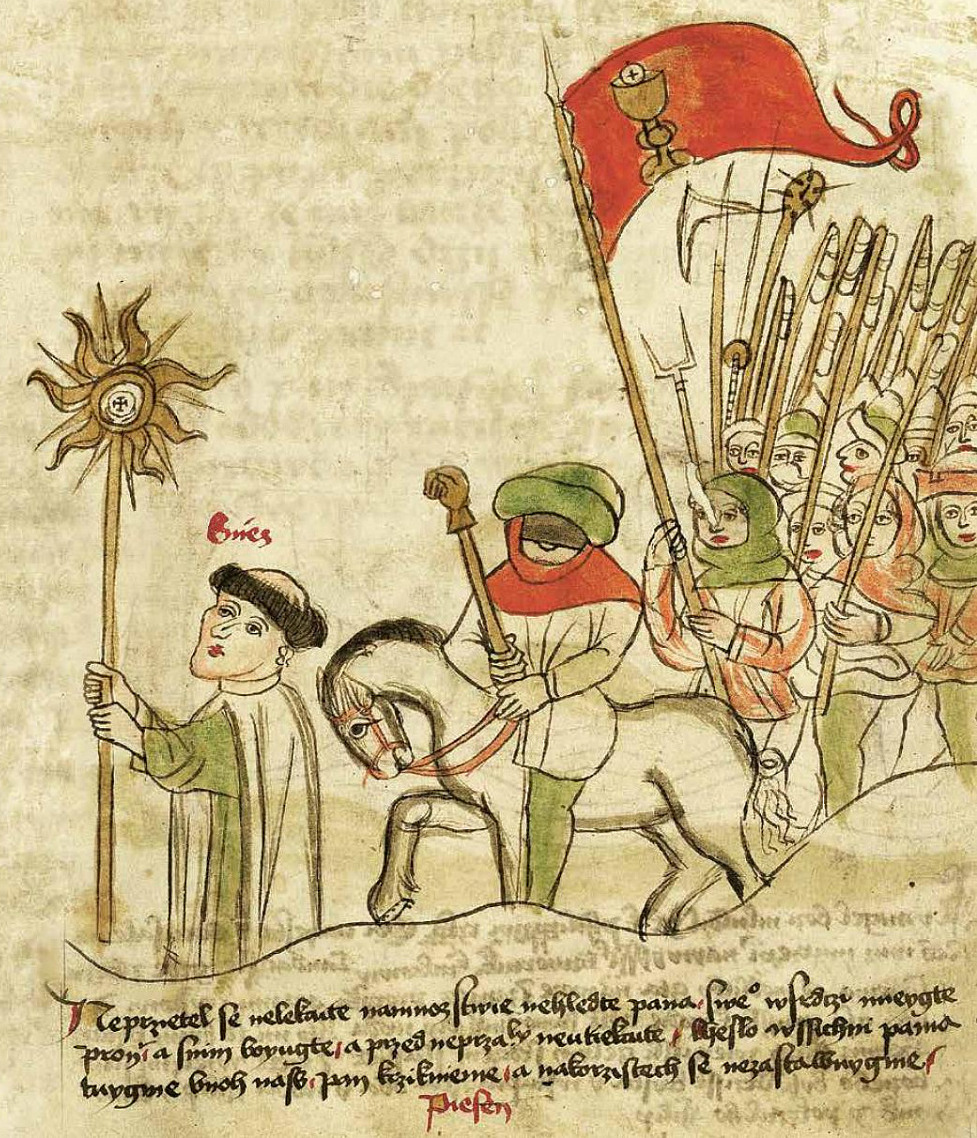 kniez
Neprzietel se nelekaite namnozstwie nehledte pana sweº wsrdczi mieygte
pron a snim boyugte, a przed neprzaly neutiekaite, Heslo wssichni pama
tuygme buoh nass, pan krzikneme, a nakorzistech se nezastawuygme,
Piesen